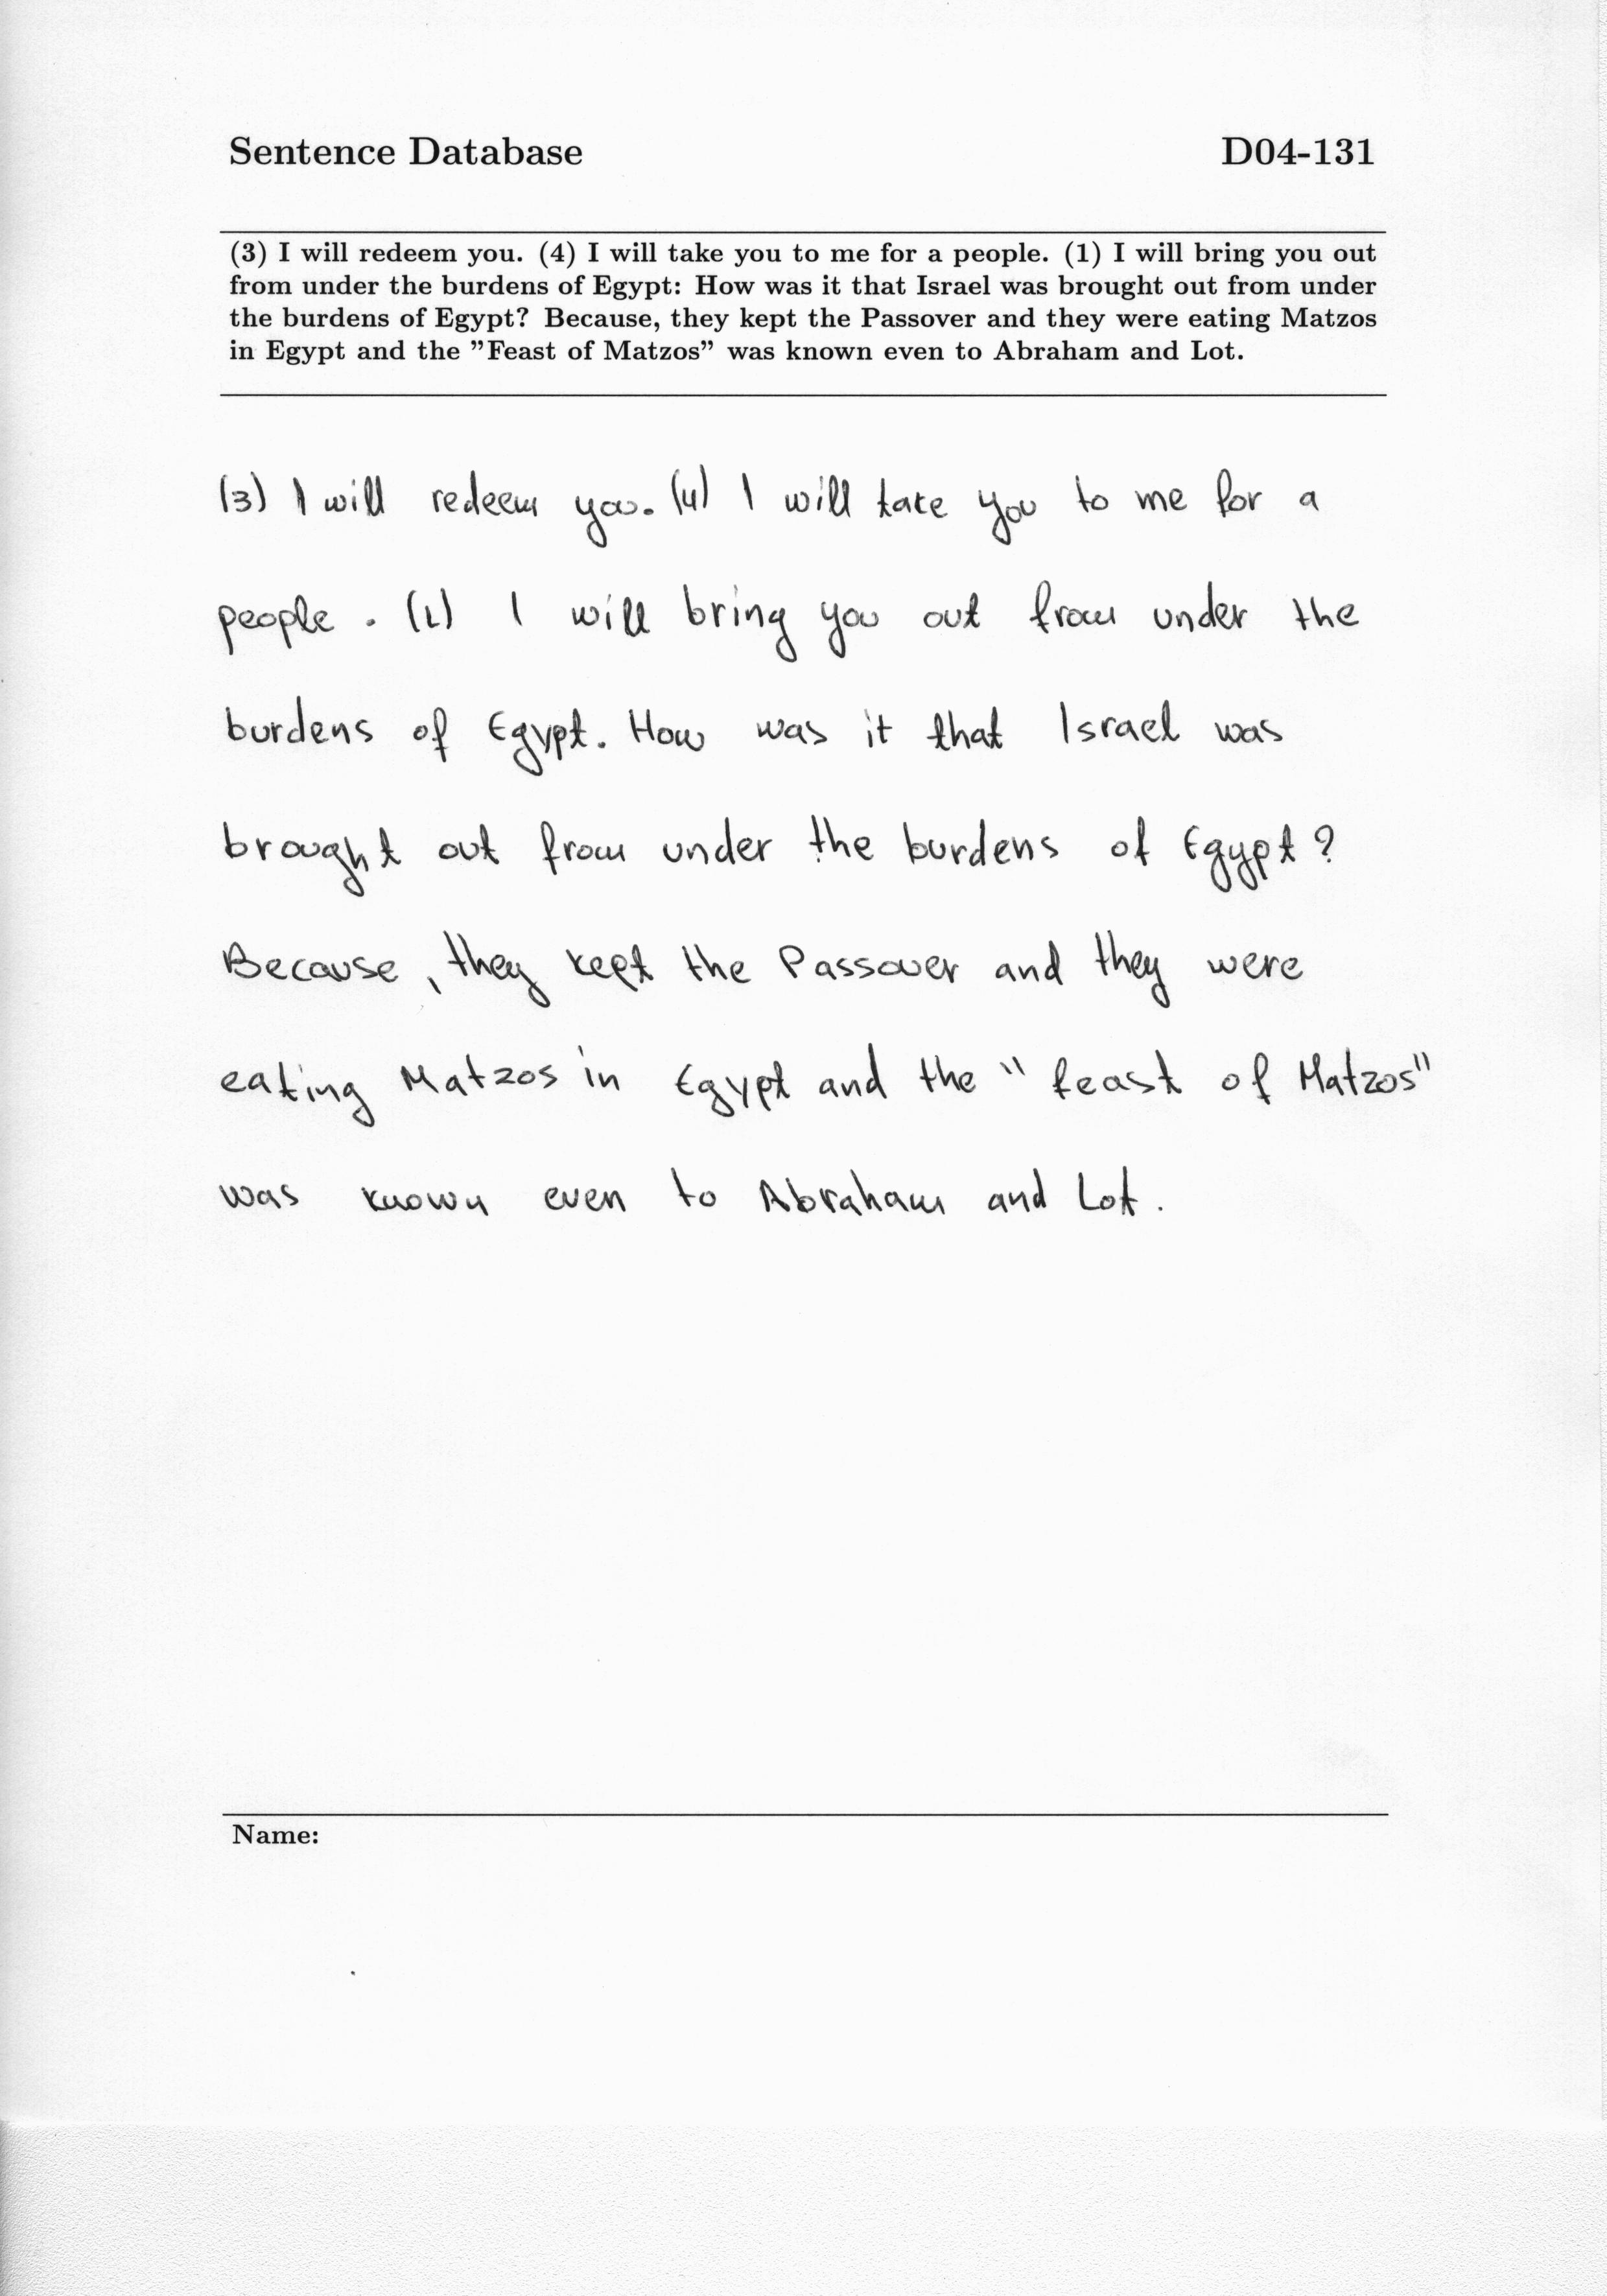 Sentence Database D04-131
(3) I will redeem you. (4) I will take you to me for a people. (1) I will bring you out
from under the burdens of Egypt: How was it that Israel was brought out from under
the burdens of Egypt? Because, they kept the Passover and they were eating Matzos
in Egypt and the ”Feast of Matzos” was known even to Abraham and Lot.
(3) I will redeem you. (4) I will take you to me for a
people . (1) I will bring you out from under the
burdens of Egypt. How was it that Israel was
brought out from under the burdens of Egypt?
Because, they kept the Passover and they were
eating Matzos in Egypt and the "feast of Matzos"
was known even to Abraham and Lot.
Name: